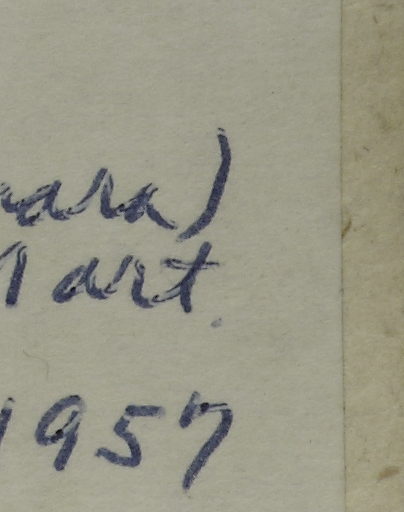 ara)
art.
1957